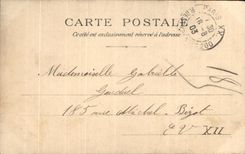 CARTE POSTALE
Ce côté est exclusivement réservé à l'adresse
Mademoiselle Gabrielle
185 rue Michel Bizot
E V XII